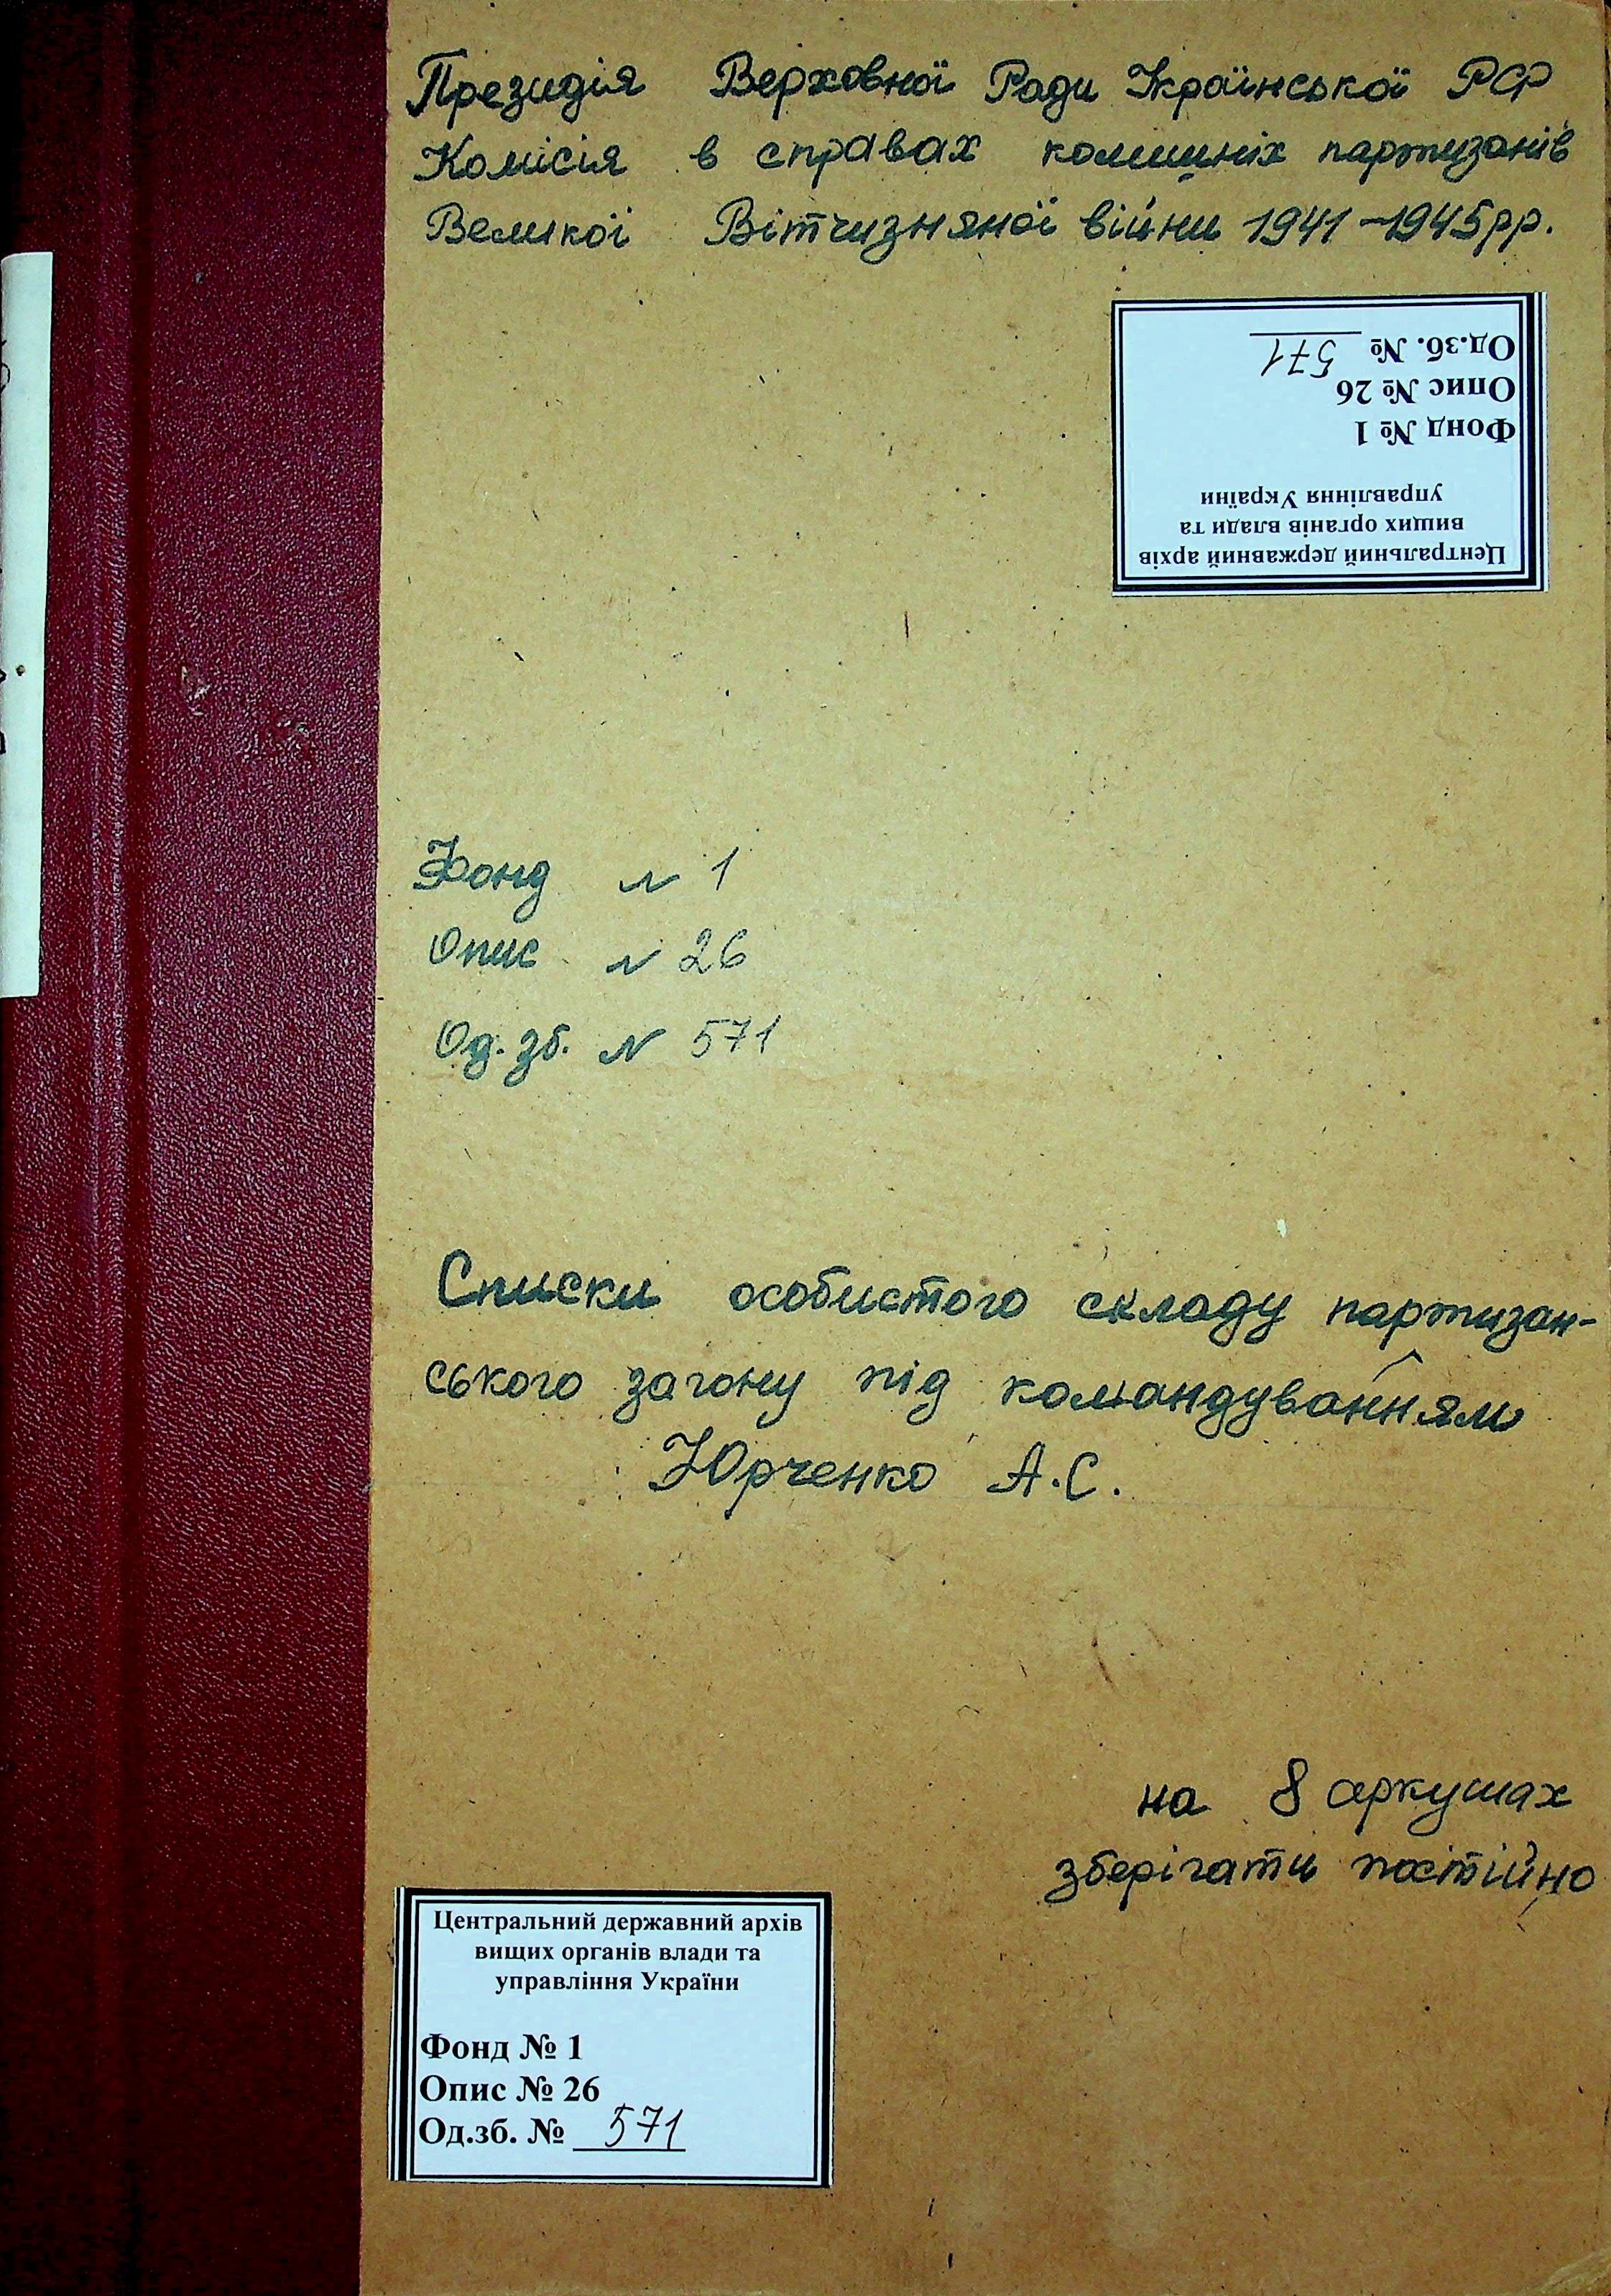 Президія Верховної Ради Української РСР
Комісія в справах колишніх партизанів
Великої Вітчизняної війни 1941-1945рр.
Центральний державний архів
вищих органів влади та
управління України
Фонд № 1
Опис № 26
Од.зб. № 571
Фонд N 1
Опис N 26
Од. зб. N 571
Списки особистого складу партизан-
ського загону під командуванням
Юрченко А.С.
на 8 аркушах
зберігати постійно
Центральний державний архів
вищих органів влади та
управління України
Фонд № 1
Опис № 26
Од.зб. № 571